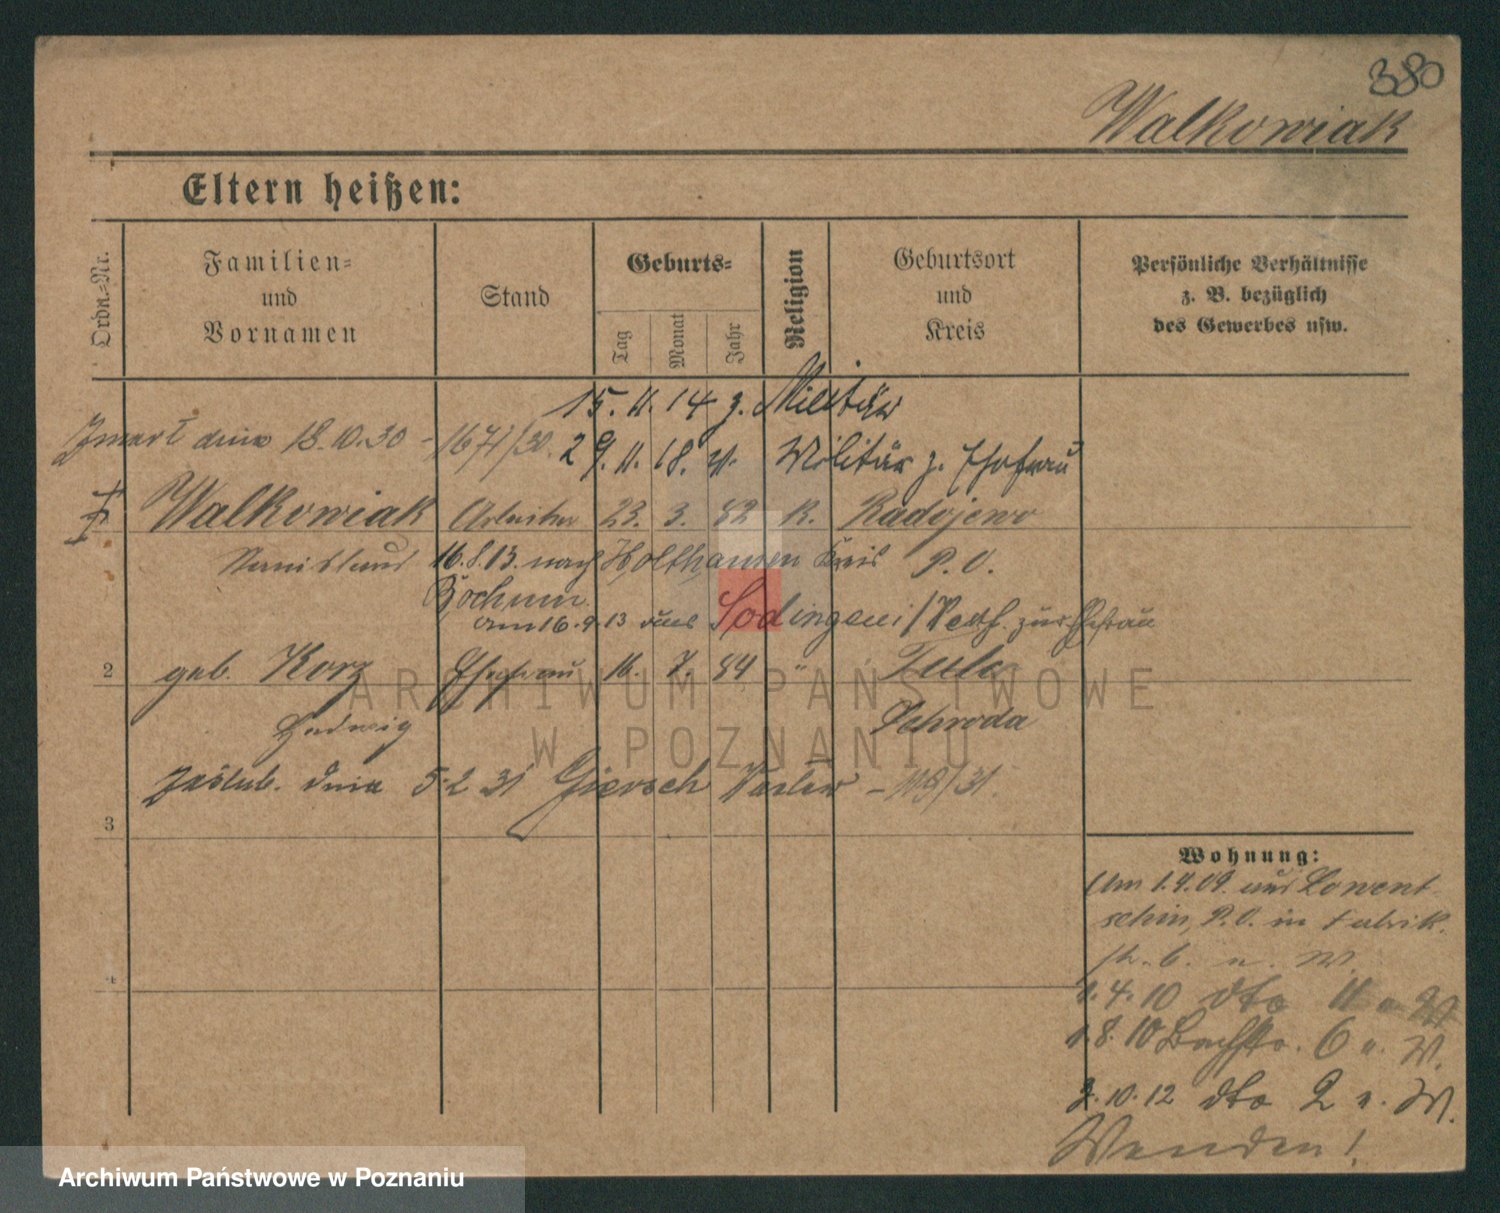 380
Walkowiak
Eltern heißen:
Ordn.-Nr.
Familien-
und
Vornamen
Stand
Geburts-
Tag
Monat
Jahr
Religion
Geburtsort
und
Kreis
Persönliche Verhältnisse
z. B. bezüglich
des Gewerbes usw.
15. 11. 14 z. Militär
Zmarł dnia 18.10.30 - 1671/30.
29. 11. 18. v. Militär z. Ehefrau
Walkowiak Arbeiter 23. 3. 82 K. Radojewo
Stanislaus 16.8.13. nach Holthausen Kreis P. O.
Bochum
am 16.9.13 aus Sodingen / zur Ehefrau
2 geb. Korz Ehefrau 16. 7. 84 " Tulce
Hedwig Schroda
Zaślub. dnia 5.2 31 Giersch Vaclaw - 119/31.
3
4
Wohnung:
Am 1.4.09. aus Lowent-
schin, P.O. in Fabrik-
str. 6. n. W.
1.4.10 dto 11 n W
1.8.10 Bachstr. 6 n. W.
2.10.12 dto 2 n. W.
Wenden!
ARCHIWUM PAŃSTWOWE
W POZNANIU
Archiwum Państwowe w Poznaniu